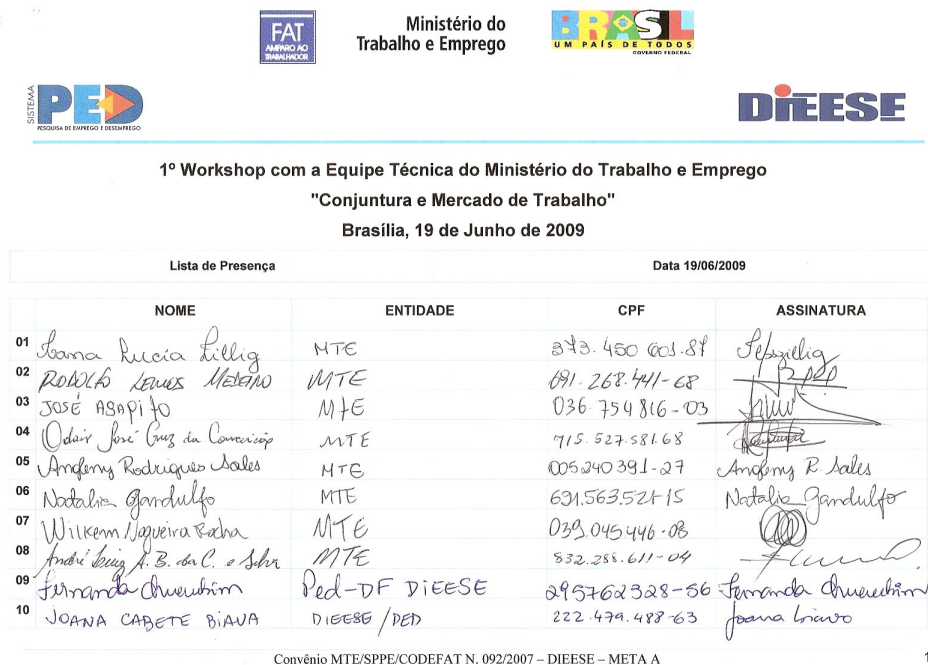 FAT
AMPARO AO
TRABALHADOR
Ministério do
Trabalho e Emprego
BRASIL
UM PAÍS DE TODOS
GOVERNO FEDERAL
SISTEMA
PED
PESQUISA DE EMPREGO E DESEMPREGO
DIEESE
1º Workshop com a Equipe Técnica do Ministério do Trabalho e Emprego
"Conjuntura e Mercado de Trabalho"
Brasília, 19 de Junho de 2009
Lista de Presença Data 19/06/2009
NOME ENTIDADE CPF ASSINATURA
01 Lucia MTE 373.450 001.87
02 RODOLFO MTE 691.268.441-68
03 JOSÉ ASAPITO MTE 036.754816-03
04 Odair José Cruz da Conceição MTE 715.527.581.68
05 Rodrigues Sales MTE 005240391-27 R. Sales
06 Natalia Gandulfo MTE 691.563.521-15 Natalia Gandulfo
07 Nogueira Rocha MTE 039.045446-08
08 André Luiz A. B. da C. e Silva MTE 832.288.611-04
09 Fernanda Ped-DF DiEESE 295762328-56 Fernanda
10 JOANA CABETE BIAVA DIEESE/PED 222.479.488-63 Joana Biava
Convênio MTE/SPPE/CODEFAT N. 092/2007 – DIEESE – META A 1